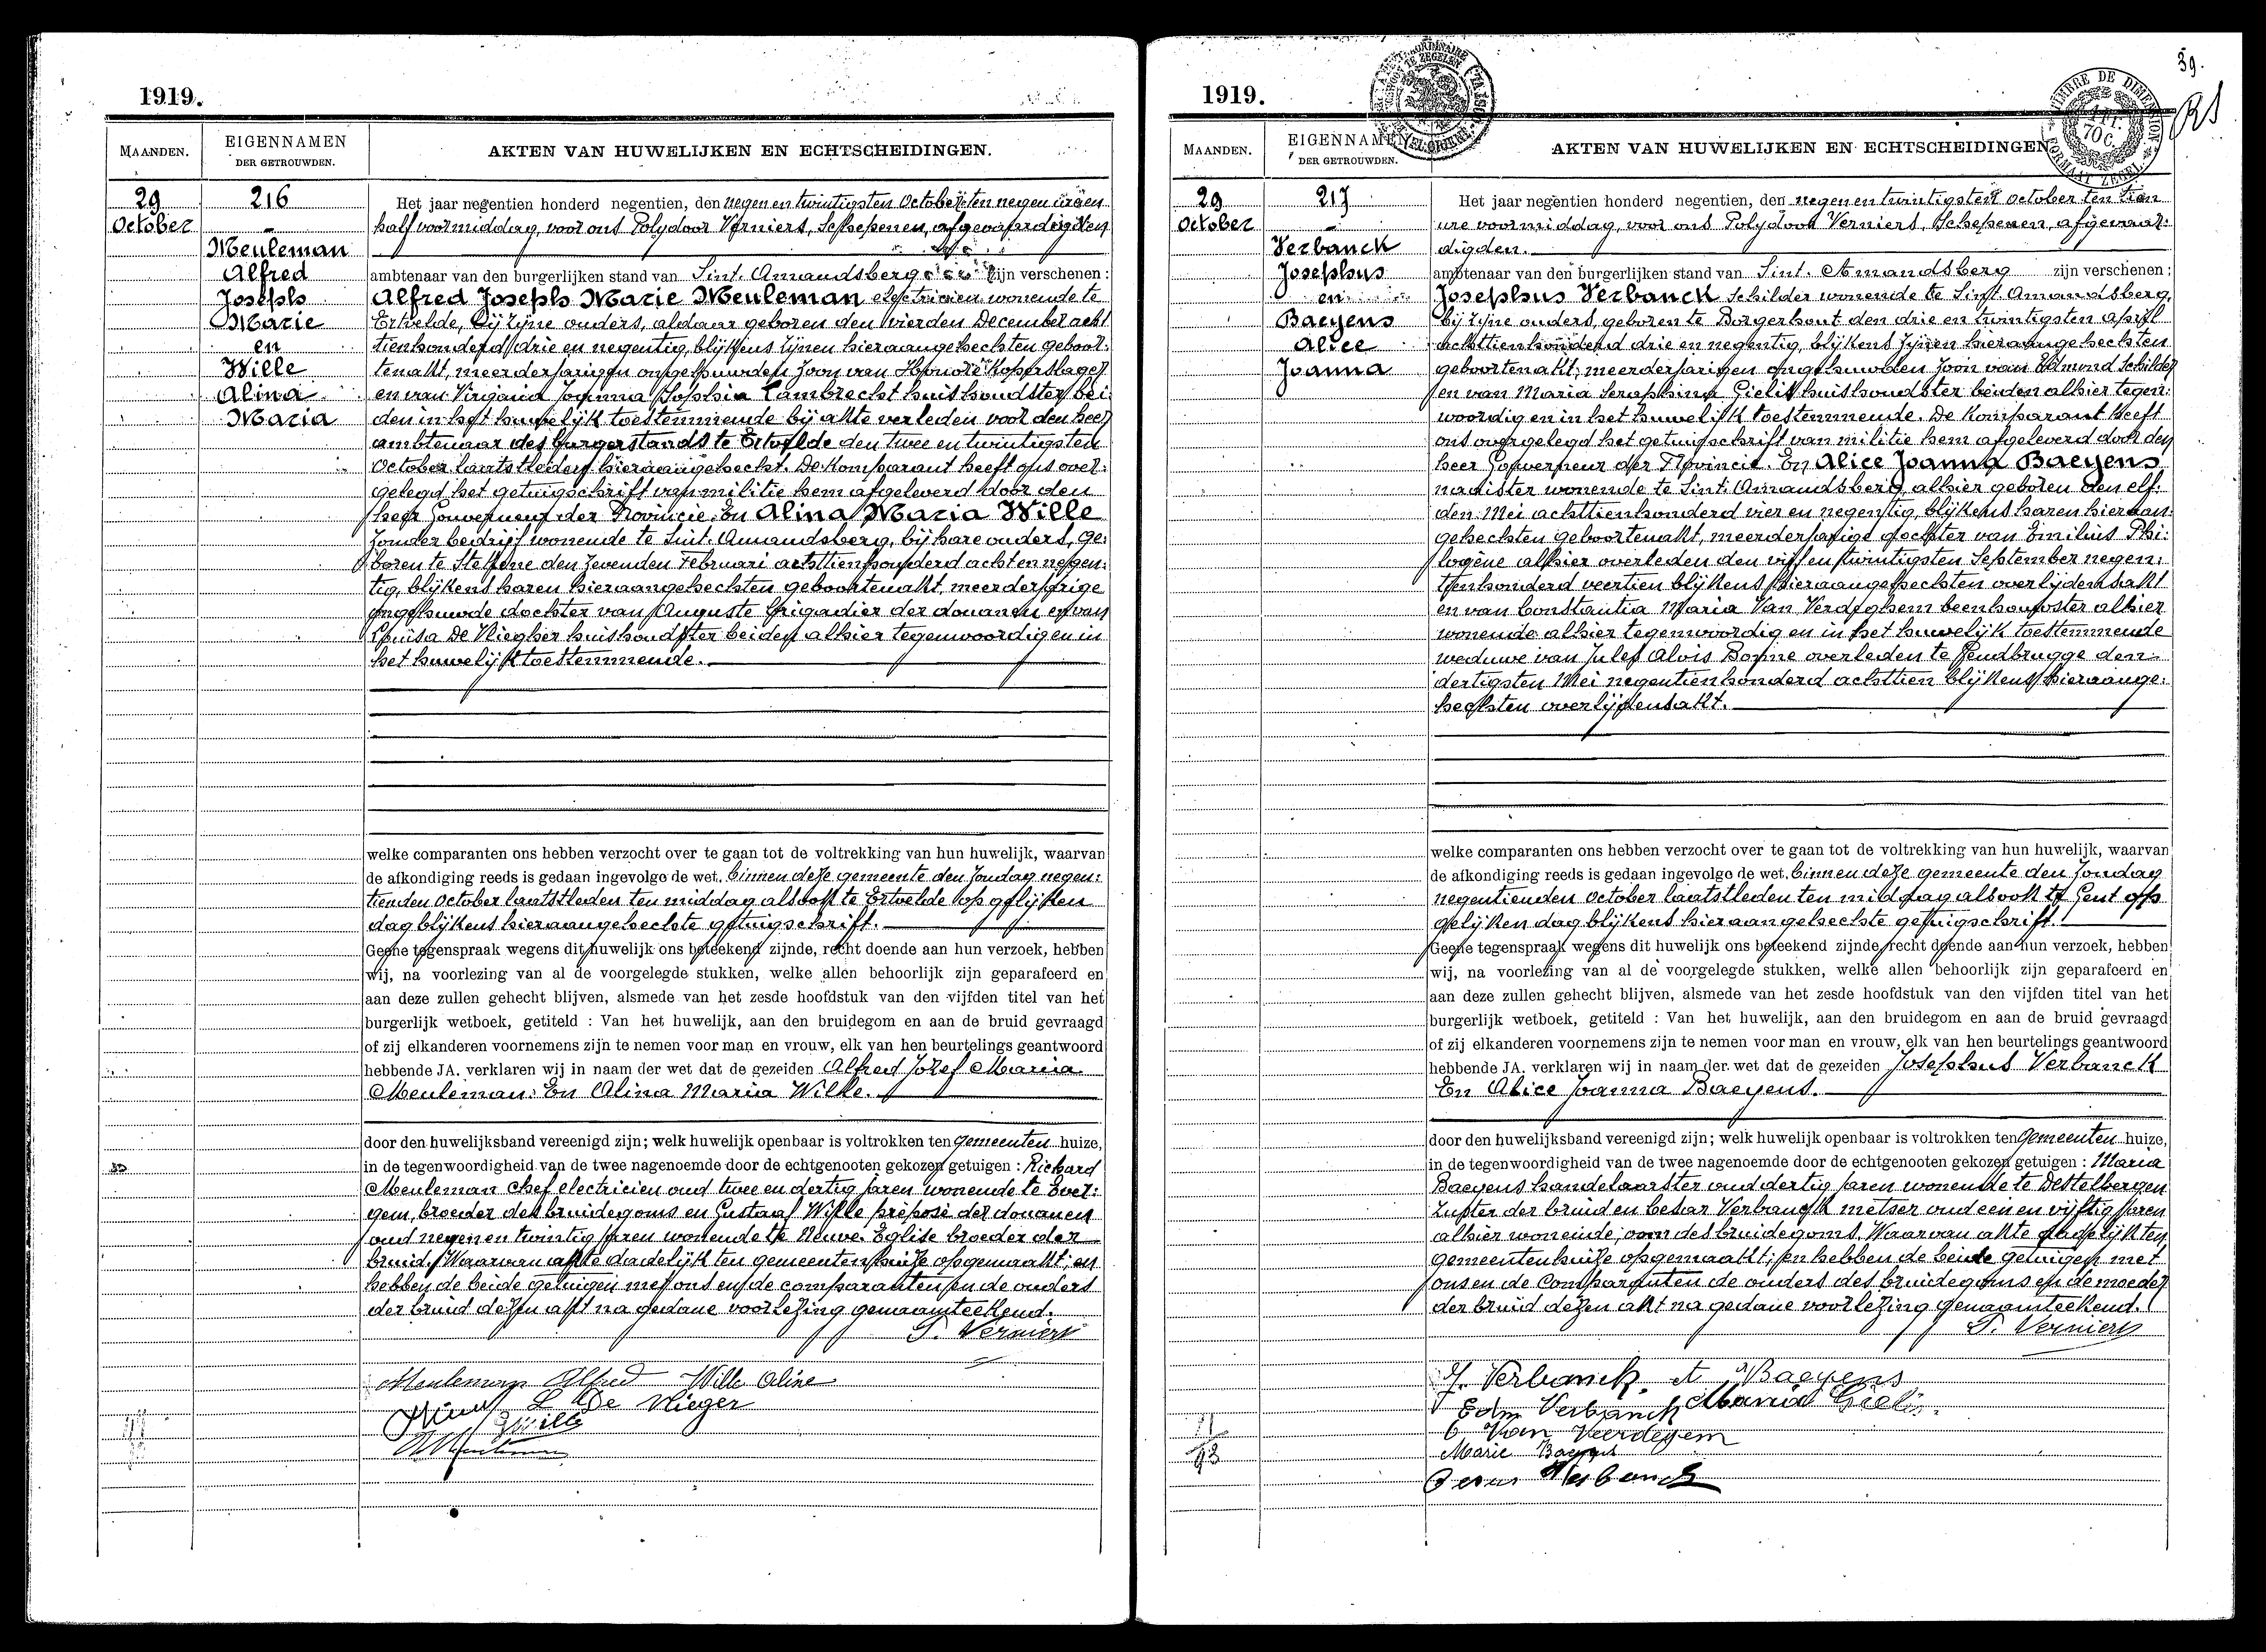 1919.
MAANDEN.
EIGENNAMEN
DER GETROUWDEN.
AKTEN VAN HUWELIJKEN EN ECHTSCHEIDINGEN.
29
October
216
Meuleman
Alfred
Josephs
Marie
en
Wille
Alina
Maria
Het jaar negentien honderd negentien, den negen en twintigsten October ten negen uren
half voormiddag, voor ons Polydoor Verniers, Schepenen, afgevaardigden
ambtenaar van den burgerlijken stand van Sint. Amandsberg zijn verschenen :
Alfred Josephs Marie Meuleman electricien wonende te
Ertvelde, bij zijne ouders, aldaar geboren den vierden December acht
tienhonderd drie en negentig, blijkens zijnen hieraangehechten geboor:
tenakt, meerderjarigen ongehuwden zoon van Honoré Koperslager
en van Virginia Joanna Sophia Lambrecht huishoudster bei:
den in het huwelijk toestemmende bij akte verleden voor den heer
ambtenaar des burgerstands te Ertvelde den twee en twintigsten
October laatstleden hieraangehecht. De komparant heeft ons over:
gelegd het getuigschrift van militie hem afgeleverd door den
heer Gouverneur der Provincie. En Alina Maria Wille
zonder bedrijf wonende te Sint. Amandsberg, bij hare ouders, ge:
boren te Stekene den zevenden Februari achttienhonderd acht en negen:
tig, blijkens haren hieraangehechten geboortenakt, meerderjarige
ongehuwde dochter van Auguste brigadier der douanen en van
Louisa De Vliegher huishoudster beiden alhier tegenwoordig en in
het huwelijk toestemmende.
welke comparanten ons hebben verzocht over te gaan tot de voltrekking van hun huwelijk, waarvan
de afkondiging reeds is gedaan ingevolge de wet, binnen deze gemeente den zondag negen:
tienden October laatstleden ten middag alsook te Ertvelde op gelijken
dag blijkens hieraangehechte getuigschrift.
Geene tegenspraak wegens dit huwelijk ons beteekend zijnde, recht doende aan hun verzoek, hebben
wij, na voorlezing van al de voorgelegde stukken, welke allen behoorlijk zijn geparafeerd en
aan deze zullen gehecht blijven, alsmede van het zesde hoofdstuk van den vijfden titel van het
burgerlijk wetboek, getiteld : Van het huwelijk, aan den bruidegom en aan de bruid gevraagd
of zij elkanderen voornemens zijn te nemen voor man en vrouw, elk van hen beurtelings geantwoord
hebbende JA. verklaren wij in naam der wet dat de gezeiden Alfred Jozef Maria
Meuleman. En Alina Maria Wille.
door den huwelijksband vereenigd zijn; welk huwelijk openbaar is voltrokken ten gemeenten huize,
in de tegenwoordigheid van de twee nagenoemde door de echtgenooten gekozen getuigen : Richard
Meuleman chef electricien oud twee en dertig jaren wonende te Ever:
gem, broeder des bruidegoms en Gustaaf Wille preposé der douanen
oud negen en twintig jaren wonende te Neuve. Eglise broeder der
bruid. Waarvan akte dadelijk ten gemeentenhuize opgemaakt; en
hebben de beide getuigen met ons en de comparanten en de ouders
der bruid dezen akt na gedane voorlezing genaamteekend.
P. Verniers
Meuleman Alfred Wille Aline
L De Vlieger
GWille
1919.
39.
MAANDEN.
EIGENNAMEN
DER GETROUWDEN.
AKTEN VAN HUWELIJKEN EN ECHTSCHEIDINGEN
29
October
217
Verbanck
Josephus
en
Baeyens
Alice
Joanna
Het jaar negentien honderd negentien, den negen en twintigsten October ten tien
ure voormiddag, voor ons Polydoor Verniers, Schepenen, afgevaar:
digden.
ambtenaar van den burgerlijken stand van Sint. Amandsberg zijn verschenen ;
Josephus Verbanck Schilder wonende te Sint Amandsberg,
bij zijne ouders, geboren te Borgerhout den drie en twintigsten April
achttienhonderd drie en negentig, blijkens zijnen hieraangehechten
geboortenakt, meerderjarigen ongehuwden zoon van Edmond Schilder
en van Maria Seraphina Gielis huishoudster beiden alhier tegen:
woordig en in het huwelijk toestemmende. De komparant heeft
ons overgelegd het getuigschrift van militie hem afgeleverd door den
heer Gouverneur der Provincie. En Alice Joanna Baeyens
naaister wonende te Sint. Amandsberg, alhier geboren den elf:
den Mei achttienhonderd vier en negentig, blijkens haren hieraan:
gehechten geboortenakt, meerderjarige dochter van Emilius Phi:
logène alhier overleden den vijf en twintigsten September negen:
tienhonderd veertien blijkens hieraangehechten overlijdensakt
en van Constantia Maria Van Verdeghem beenhouwster alhier
wonende alhier tegenwoordig en in het huwelijk toestemmende
weduwe van Jules Alois Bohne overleden te Gendbrugge den
dertigsten Mei negentienhonderd achttien blijkens hieraange:
hechten overlijdensakt.
welke comparanten ons hebben verzocht over te gaan tot de voltrekking van hun huwelijk, waarvan
de afkondiging reeds is gedaan ingevolge de wet, binnen deze gemeente den zondag
negentienden October laatstleden ten middag alsook te Gent op
gelijken dag blijkens hieraangehechte getuigschrift.
Geene tegenspraak wegens dit huwelijk ons beteekend zijnde recht doende aan hun verzoek, hebben
wij, na voorlezing van al de voorgelegde stukken, welke allen behoorlijk zijn geparafeerd en
aan deze zullen gehecht blijven, alsmede van het zesde hoofdstuk van den vijfden titel van het
burgerlijk wetboek, getiteld : Van het huwelijk, aan den bruidegom en aan de bruid gevraagd
of zij elkanderen voornemens zijn te nemen voor man en vrouw, elk van hen beurtelings geantwoord
hebbende JA. verklaren wij in naam der wet dat de gezeiden Josephus Verbanck
En Alice Joanna Baeyens.
door den huwelijksband vereenigd zijn; welk huwelijk openbaar is voltrokken ten Gemeenten huize,
in de tegenwoordigheid van de twee nagenoemde door de echtgenooten gekozen getuigen : Maria
Baeyens handelaarster oud dertig jaren wonende te Destelbergen
zuster der bruid en Cesar Verbanck metser oud een en vijftig jaren
alhier wonende, oom des bruidegoms. Waarvan akte dadelijk ten
gemeentenhuize opgemaakt; en hebben de beide getuigen met
ons en de Comparanten de ouders des bruidegoms en de moeder
der bruid dezen akt na gedane voorlezing genaamteekend.
P. Verniers
J. Verbanck. A Baeyens
Edm Verbanck Maria Gielis.
C Van Veerdegem
Marie Baeyens
Verbanck